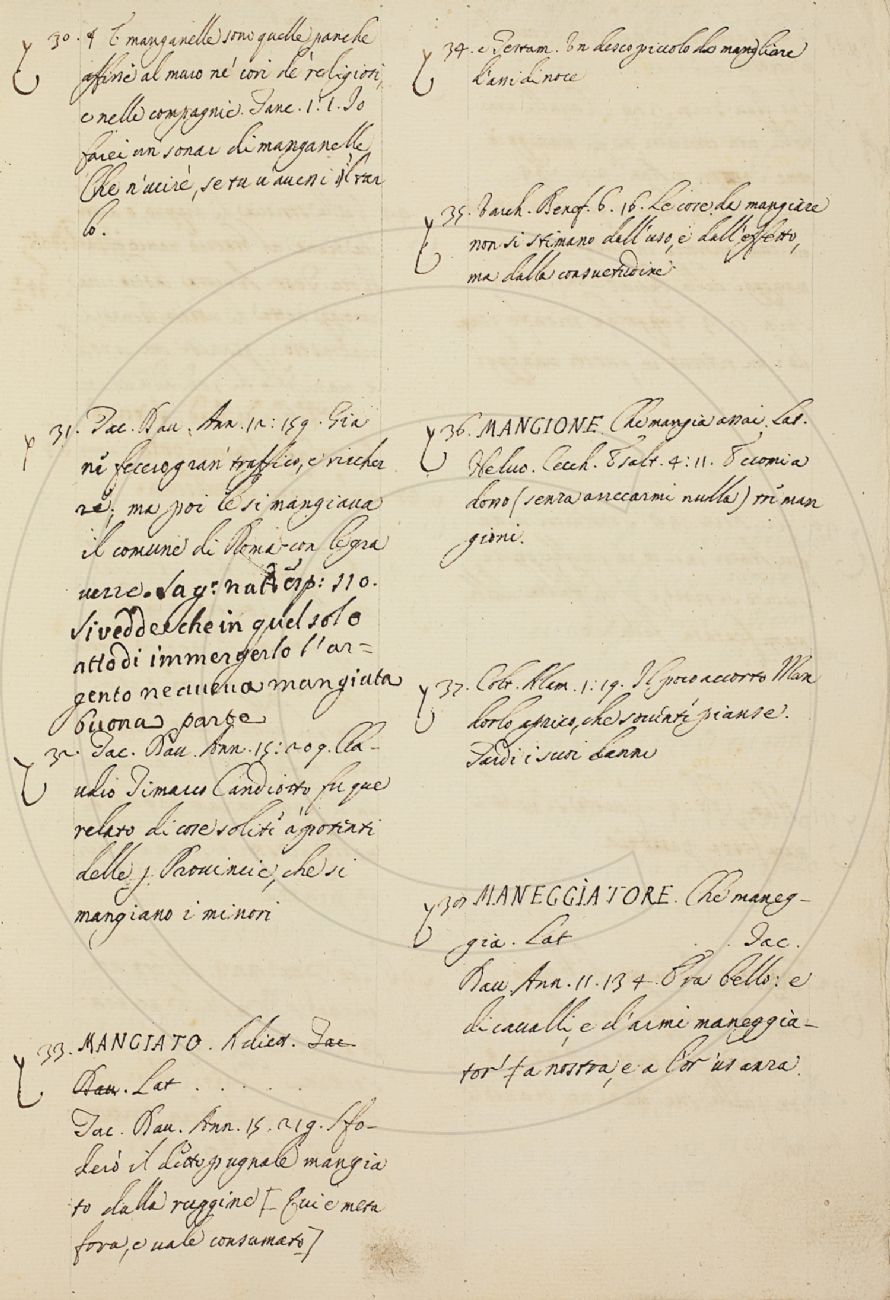 30. E manganelle sono quelle panche
affisse al muro ne' cori de' religiosi,
e nelle compagnie. Tanc. 1. 1. Io
farei un sonar di manganelle
Che n'uscirè, se tu v'avessi il tar
lo.
31. Tac. Dav. Ann. 12: 159. Già
ne feceio gran traffico, e ricchez
ze; ma poi le si mangiava
il comune di Roma con le gra
vezze. Sag: nat: esp: 110.
Si vedde che in quel solo
atto di immergerlo l'ar=
gento ne aveva mangiata
buona parte
32. Tac. Dav. Ann. 15: 209. Cla-
udio Timarco Candiotto fu que
relato di cose solite à potenti
delle Provincie, che si
mangiano i minori
33. MANGIATO. Adiet. Tac
Dav. Lat . . . . . .
Tac. Dav. Ann. 15. 219. Sfo-
derò il detto pugnale mangia
to dalla ruggine [Qui è meta
fora, e vale consumato]
34. Un desco piccolo da mangiare
d'assi di noce
35. Varch. Benef. 6. 16. Le cose da mangiare
non si stimano dall'uso, e dall'effetto,
ma dalla consuetudine
36. MANGIONE. Che mangia assai. Lat.
Heluo. Cecch. Esalt. 4: 11. E ci omia
dono (senza arrecarmi nulla) man
gioni.
37. Colt. Alam. 1: 19. Il poco accorto Man
dorlo aprico, che sovente pianse.
Tardi i suoi danni
38. MANEGGIATORE. Che maneg-
gia. Lat . . Tac.
Dav. Ann. 11. 134. Era bello: e
di cavalli, e d'armi maneggia-
tor' a nostra, e a lor' usanza.